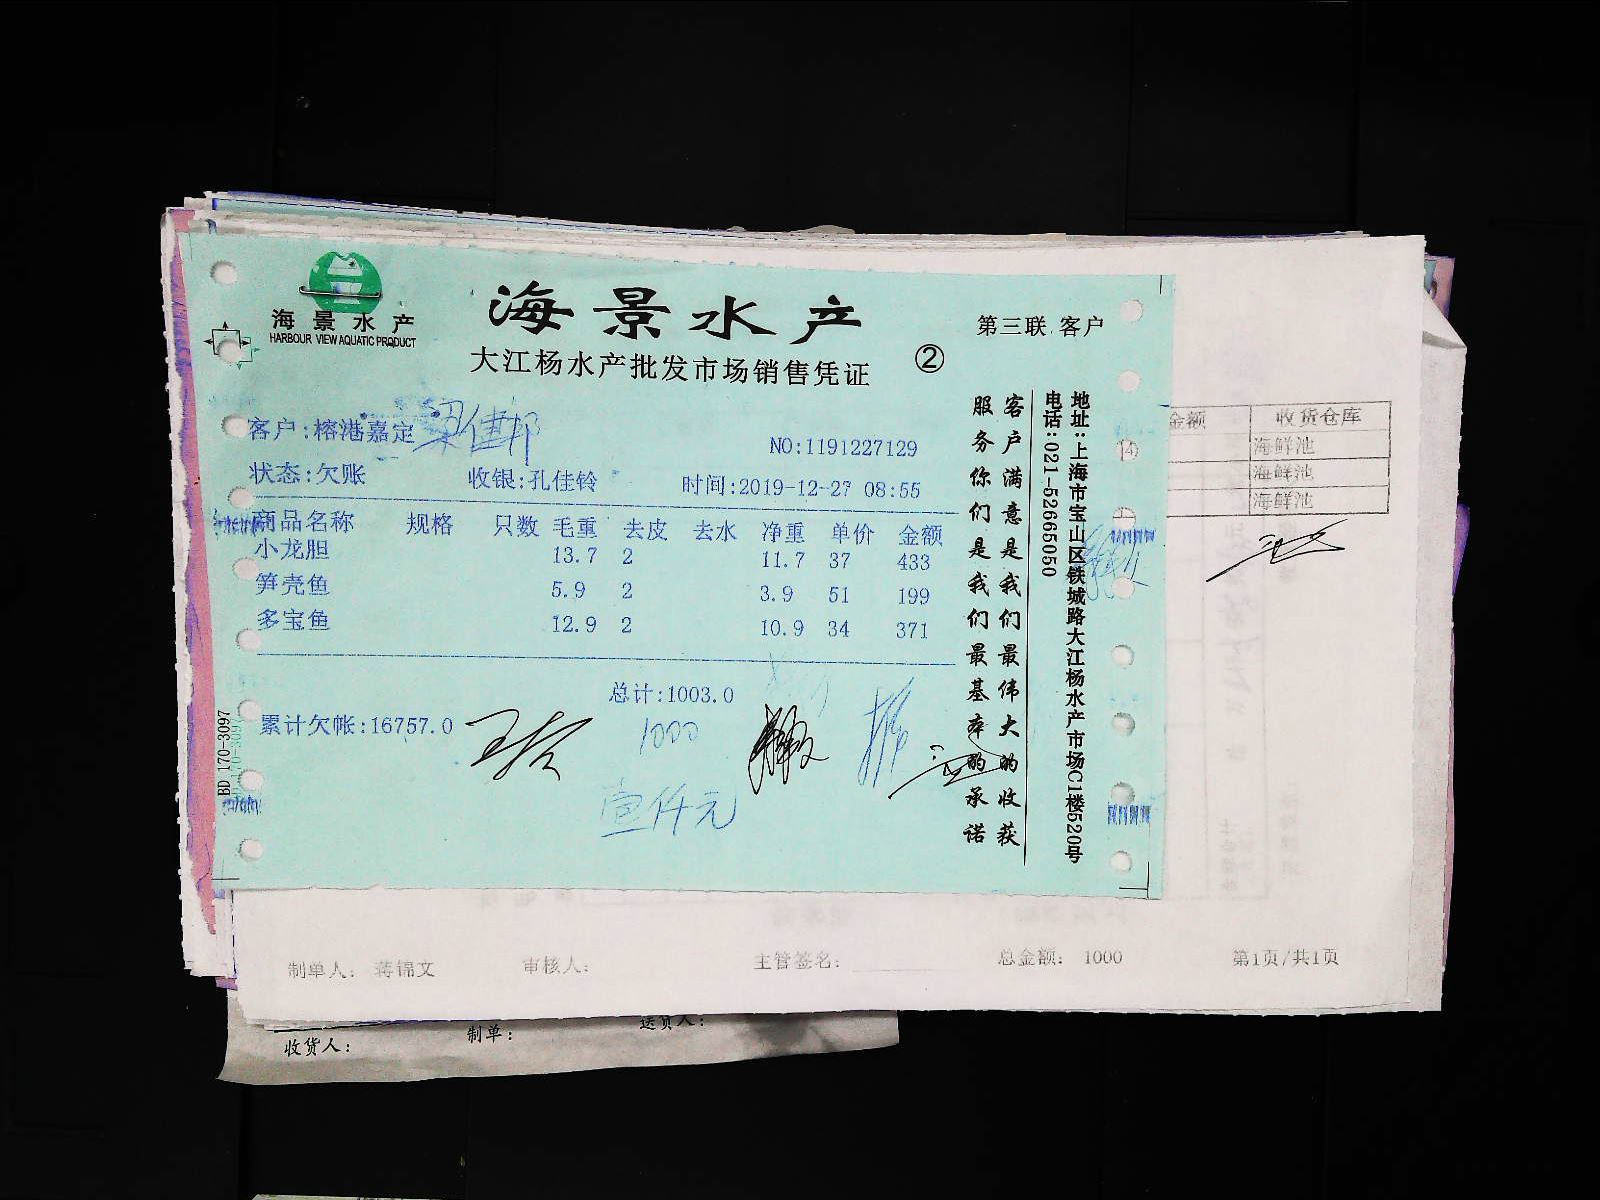 海景水产
HARBOUR VIEW AQUATIC PRODUCT
海景水产
大江杨水产批发市场销售凭证
②
第三联 客户
客户:榕港嘉定
NO:1191227129
状态:欠账 收银:孔佳铃 时间:2019-12-27 08:55
商品名称 规格 只数 毛重 去皮 去水 净重 单价 金额
小龙胆 13.7 2 11.7 37 433
笋壳鱼 5.9 2 3.9 51 199
多宝鱼 12.9 2 10.9 34 371
总计:1003.0
累计欠帐:16757.0
1000
壹仟元
客户满意是我们最伟大的收获
服务你们是我们最基本的承诺
地址:上海市宝山区铁城路大江杨水产市场C1楼520号
电话:021-52665050
BD 170-3097
金额 收货仓库
海鲜池
海鲜池
海鲜池
制单人: 蒋锦文 审核人: 主管签名: 总金额: 1000 第1页/共1页
收货人: 制单: 送货人: